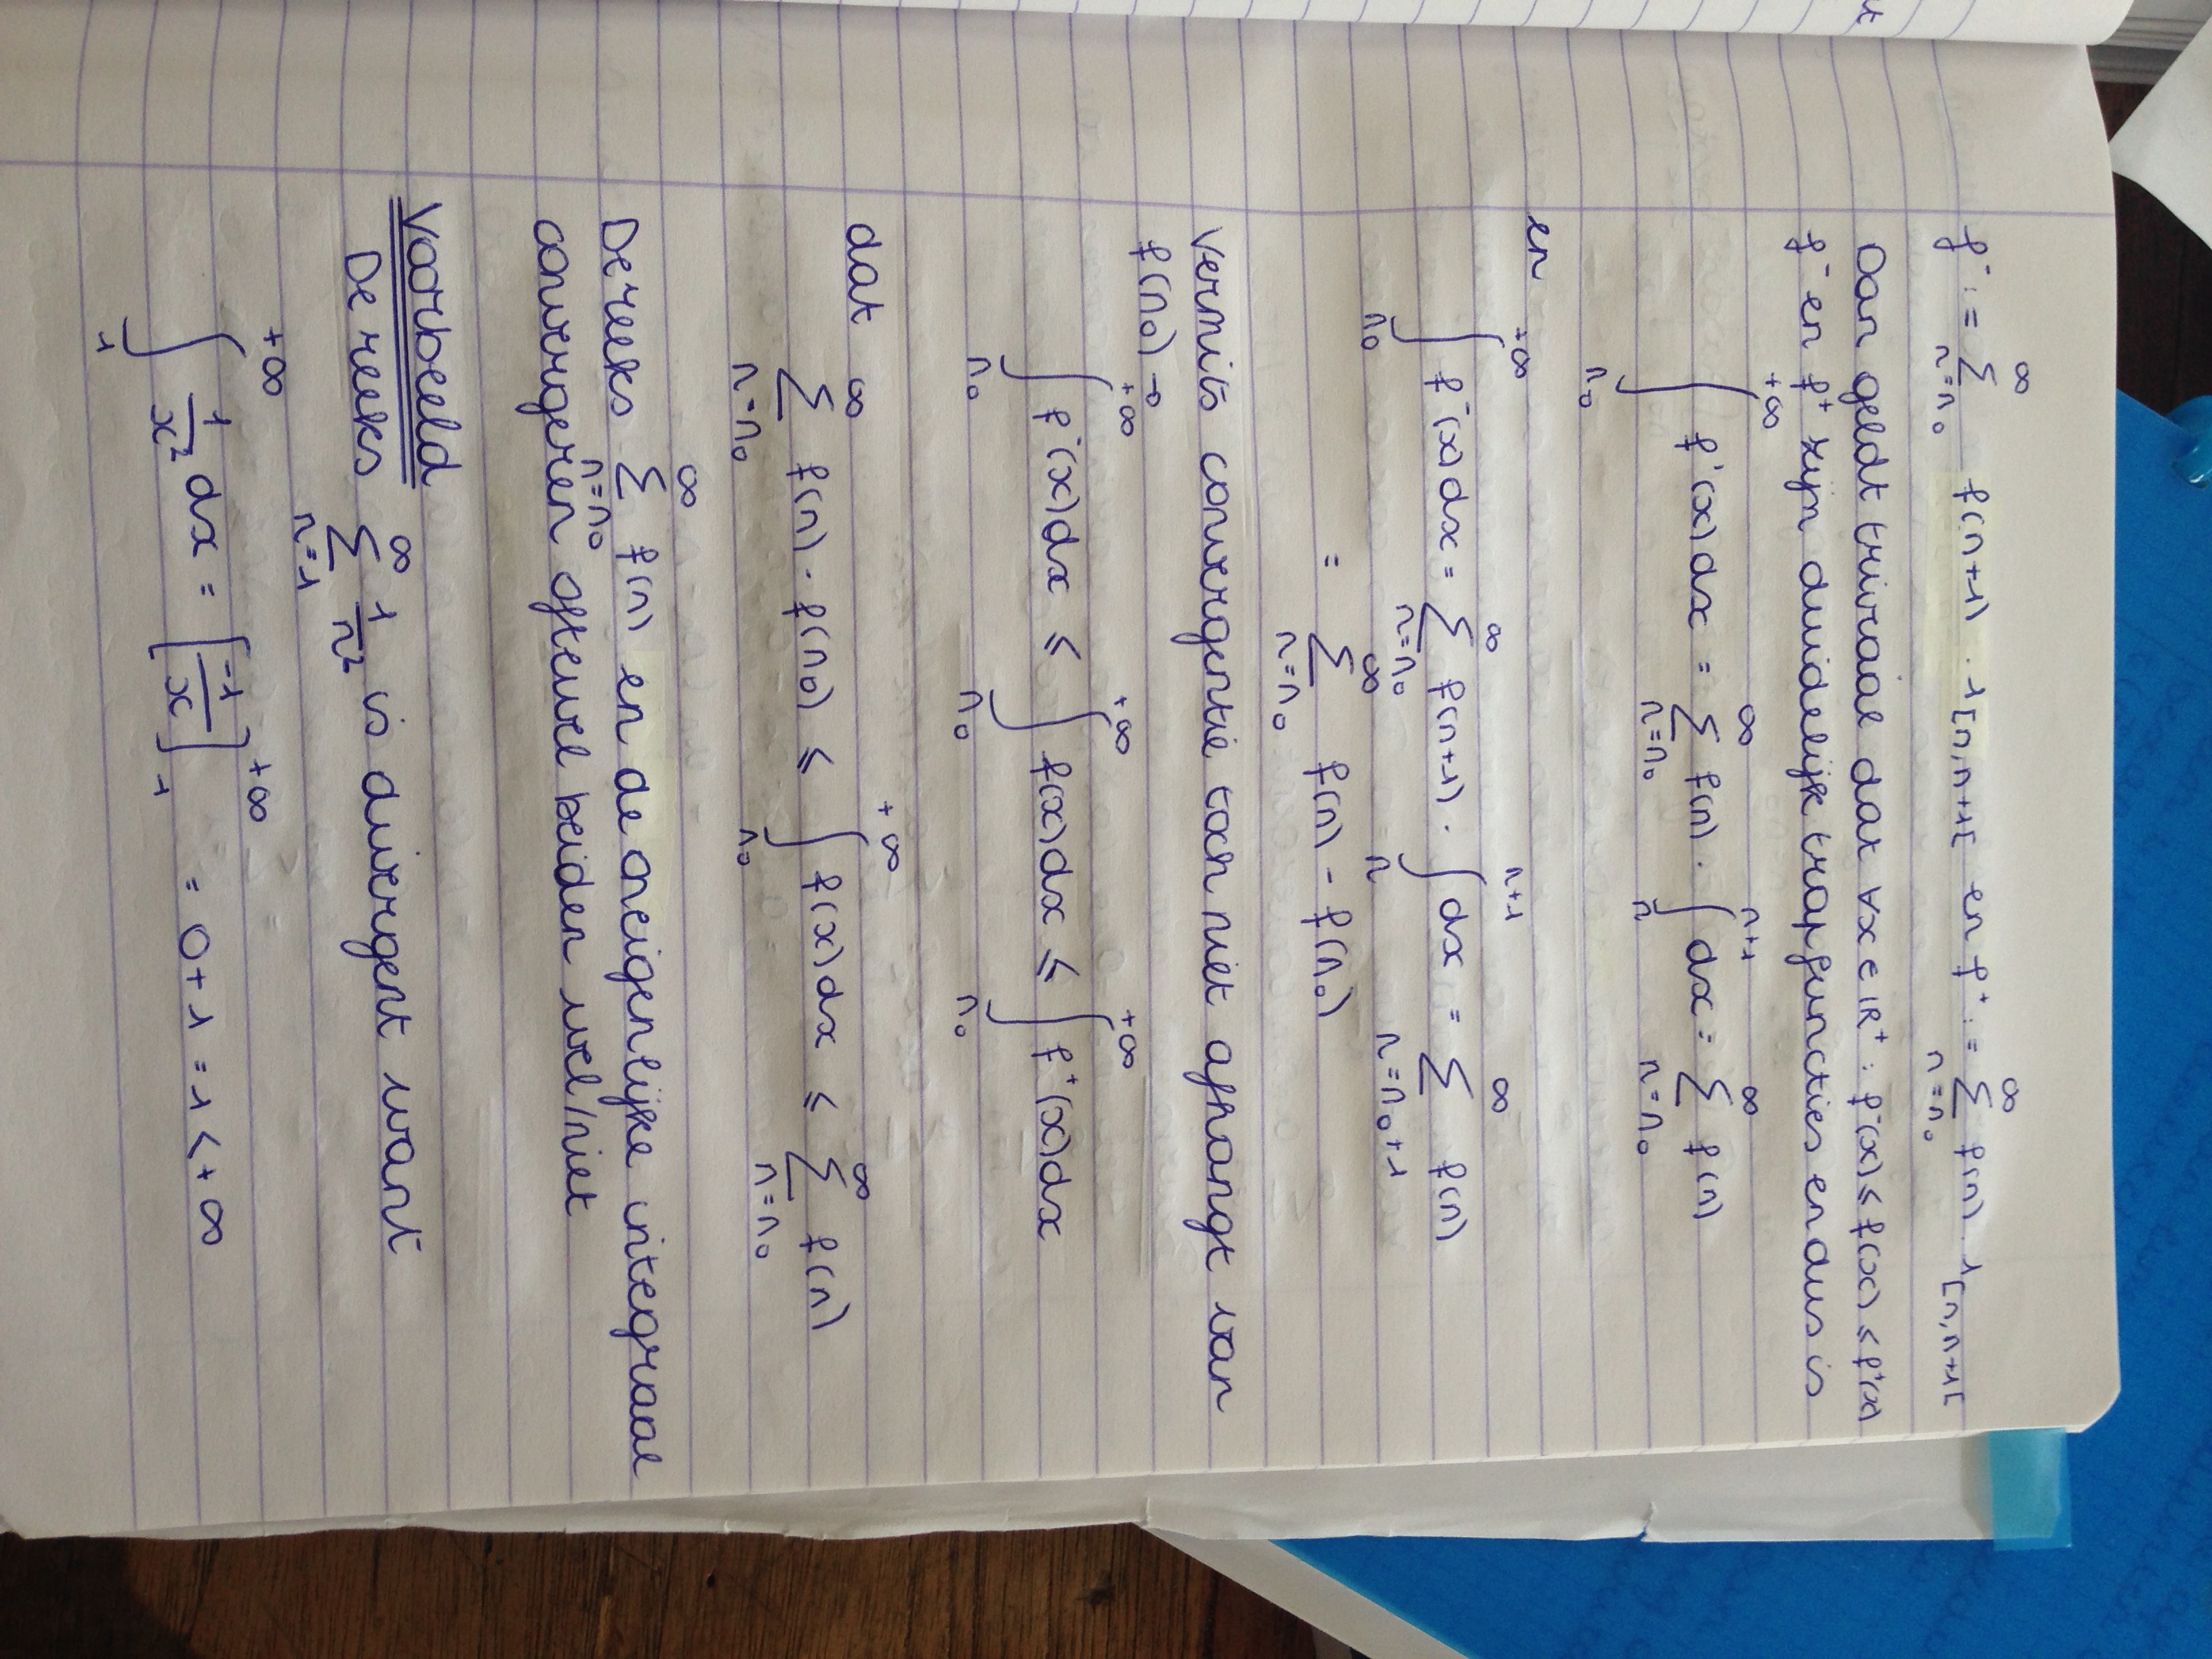 f⁻ := ∑_{n=n₀}^{∞} f(n+1) · 1_{[n,n+1[} en f⁺ := ∑_{n=n₀}^{∞} f(n) · 1_{[n,n+1[}
Dan geldt triviaal dat ∀x ∈ ℝ⁺ : f⁻(x) ≤ f(x) ≤ f⁺(x)
f⁻ en f⁺ zijn duidelijk trapfuncties en dus is
∫_{n₀}^{+∞} f⁺(x)dx = ∑_{n=n₀}^{∞} f(n) · ∫_{n}^{n+1} dx = ∑_{n=n₀}^{∞} f(n)
en
∫_{n₀}^{+∞} f⁻(x)dx = ∑_{n=n₀}^{∞} f(n+1) · ∫_{n}^{n+1} dx = ∑_{n=n₀+1}^{∞} f(n)
= ∑_{n=n₀}^{∞} f(n) - f(n₀)
Vermits convergentie toch niet afhangt van
f(n₀) →
∫_{n₀}^{+∞} f⁻(x)dx ≤ ∫_{n₀}^{+∞} f(x)dx ≤ ∫_{n₀}^{+∞} f⁺(x)dx
dat
∑_{n=n₀}^{∞} f(n) - f(n₀) ≤ ∫_{n₀}^{+∞} f(x)dx ≤ ∑_{n=n₀}^{∞} f(n)
De reeks ∑_{n=n₀}^{∞} f(n) en de oneigenlijke integraal
convergeren oftewel beiden wel/niet
Voorbeeld
De reeks ∑_{n=1}^{∞} 1/n² is divergent want
∫_{1}^{+∞} 1/x² dx = [-1/x]_{1}^{+∞} = 0+1 = 1 < +∞